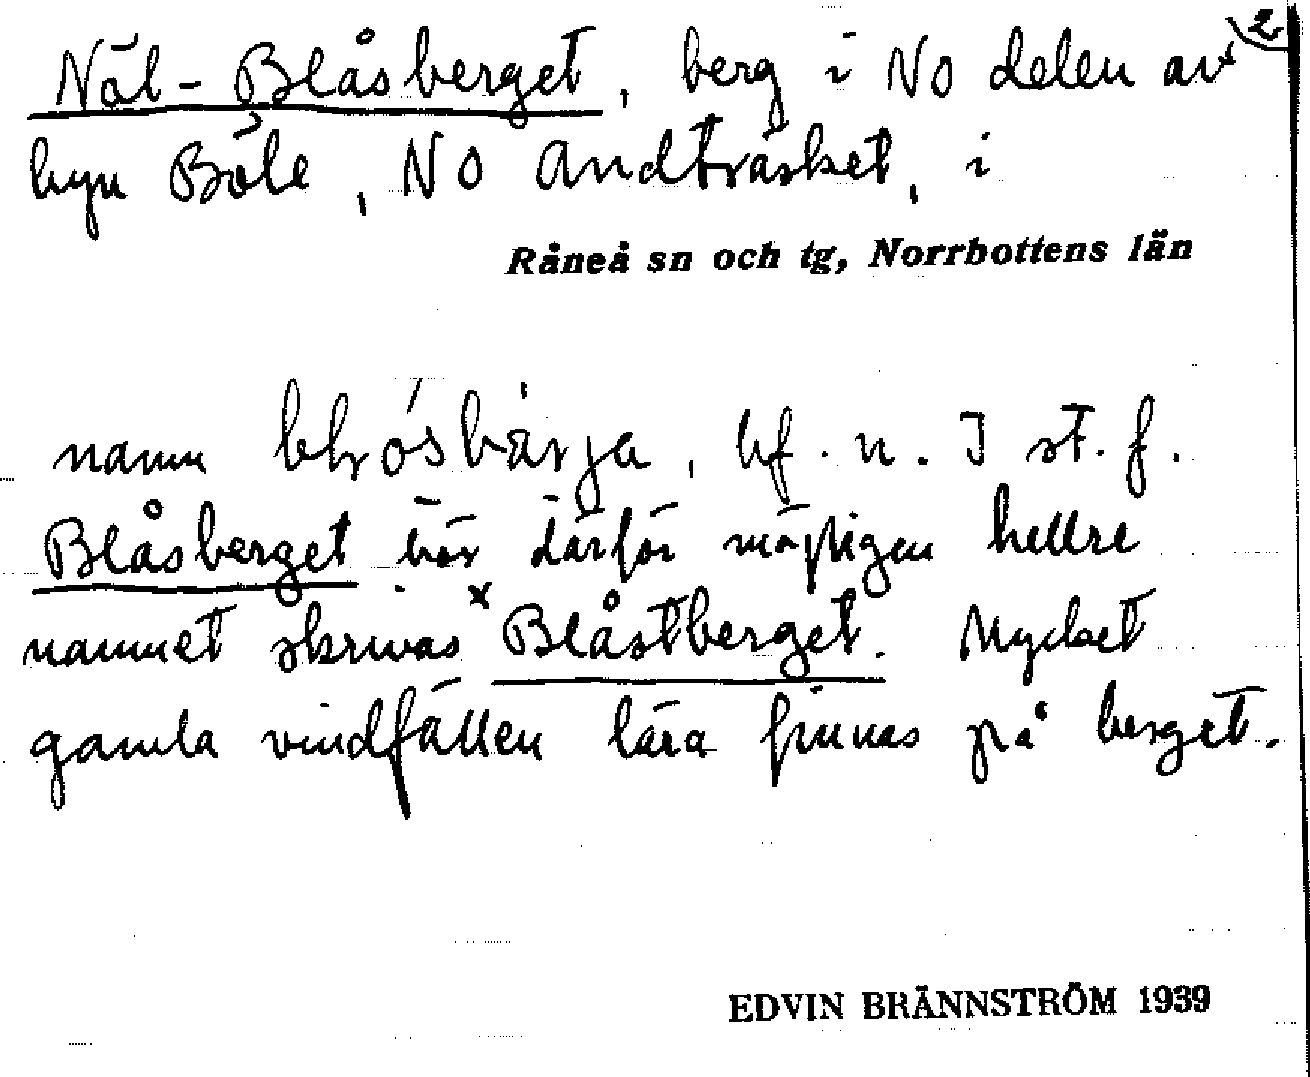 2
Näl-Blåsberget, berg i NO delen av
byn Böle, NO Andträsket, i
Råneå sn och tg, Norrbottens län
namn bḷó̀sbärja, bf. n. I st. f.
Blåsberget bör därför möjligen hellre
namnet skrivas ˣBlåstberget. Mycket
gamla vindfällen lära finnas på berget.
EDVIN BRÄNNSTRÖM 1939